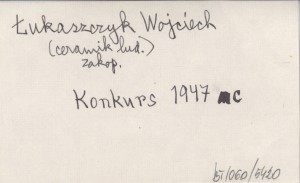 Łukaszczyk Wojciech
(ceramik lud.)
zakop.
Konkurs 1947